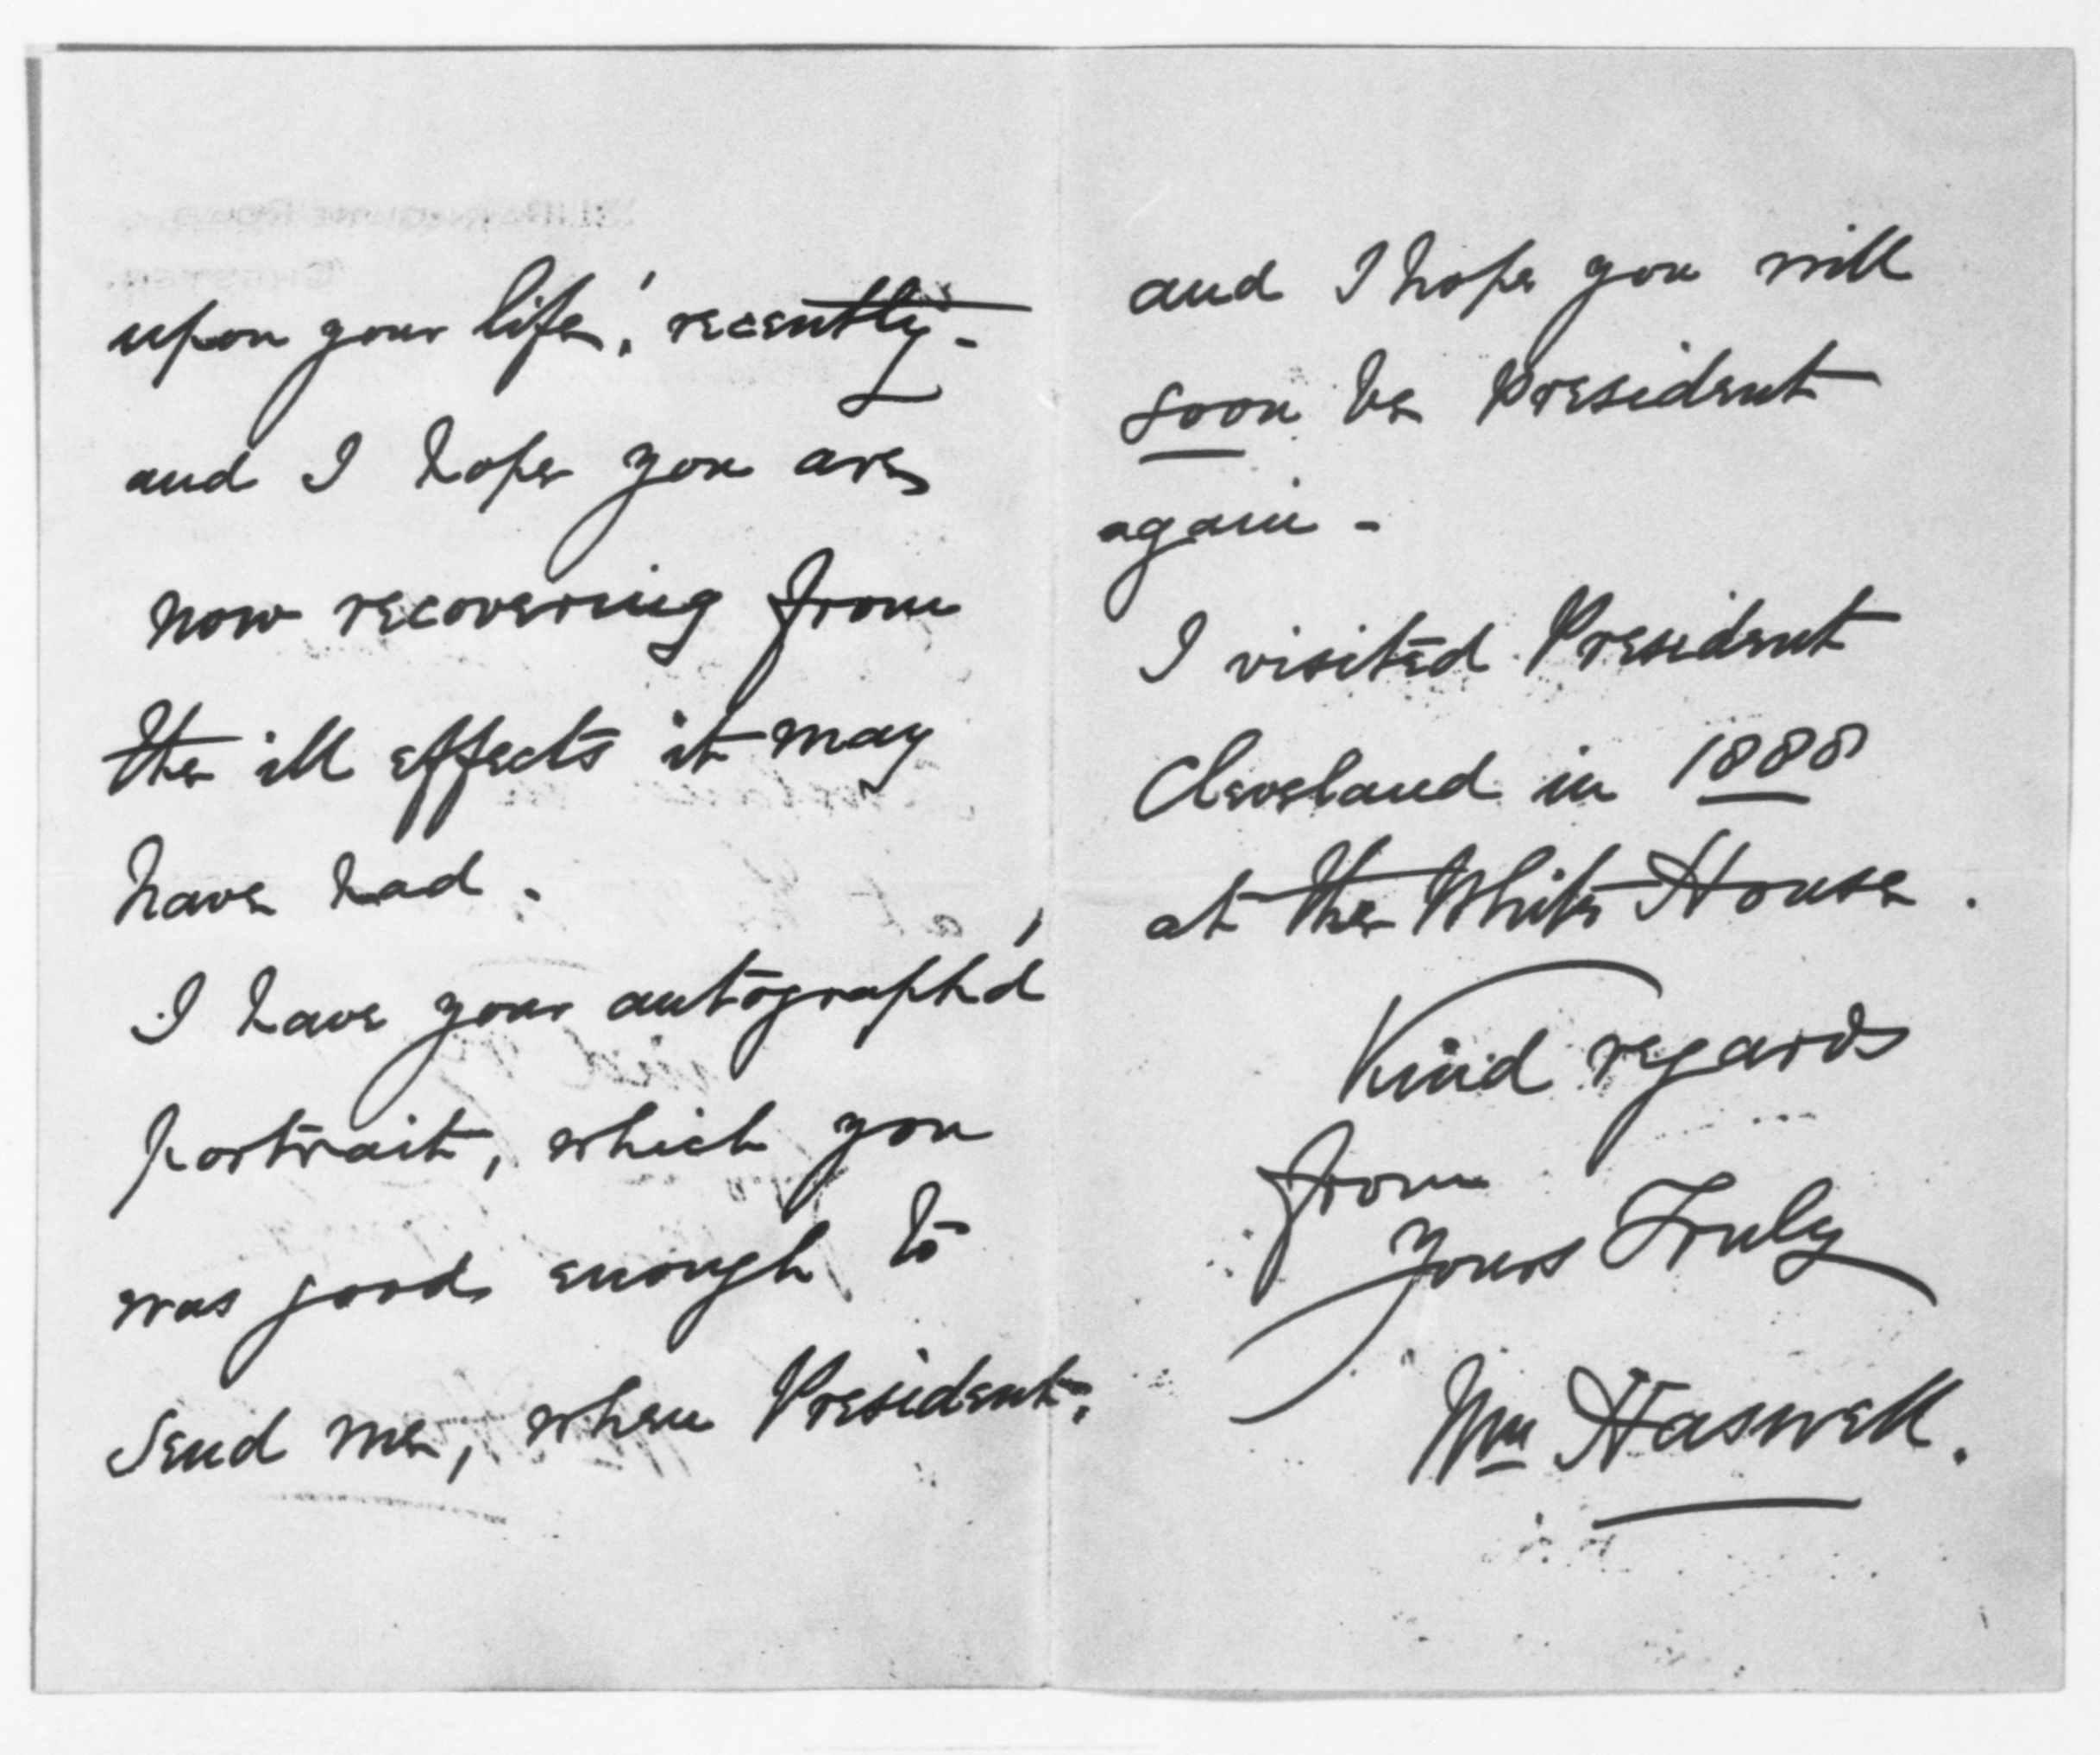 upon your life', recently -
and I hope you are
now recovering from
the ill effects it may
have had.
I have your autograph'd
portrait, which you
was good enough to
send me, when President;
and I hope you will
soon be President
again -
I visited President
Cleveland in 1888
at the White House.
Kind regards
from
Yours Truly
Wm Haswell.